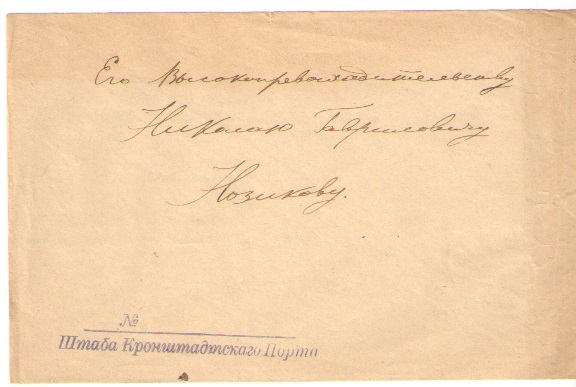 Его Высокопревосходительству
Николаю Гавриловичу
Нозикову.
№
Штаба Кронштадтскаго Порта